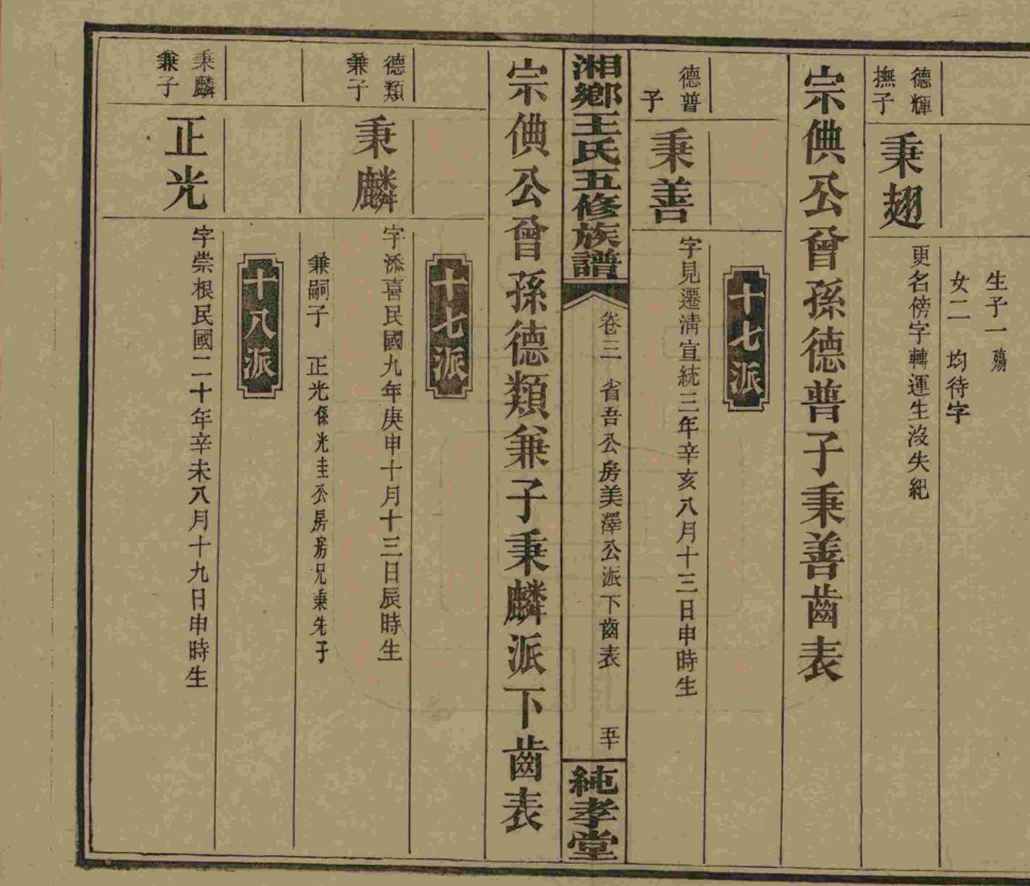 生子一 殤
女二 均待字
德輝
撫子
秉翅
更名傍字轉運生没失紀
宗倎公曾孫德普子秉善齒表
十七派
德普
子
秉善
字見遷清宣統三年辛亥八月十三日申時生
湘鄉王氏五修族譜
卷三 省吾公房美澤公派下齒表 五十
純孝堂
宗倎公曾孫德類兼子秉麟派下齒表
十七派
德類
兼子
秉麟
字添喜民國九年庚申十月十三日辰時生
兼嗣子 正光係光圭公房房兄秉先子
十八派
秉麟
兼子
正光
字崇根民國二十年辛未八月十九日申時生